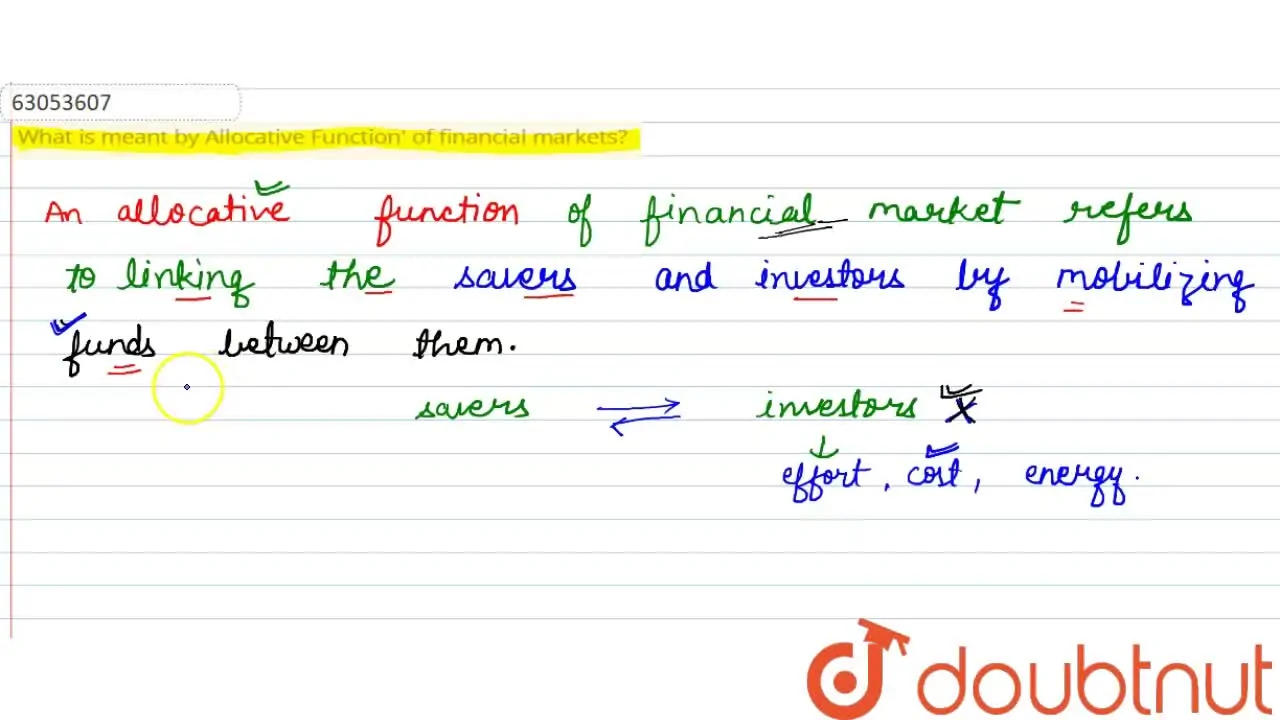 63053607
What is meant by Allocative Function' of financial markets?
An allocative function of financial market refers
to linking the savers and investors by mobilizing
funds between them.
savers investors
effort, cost, energy.
doubtnut